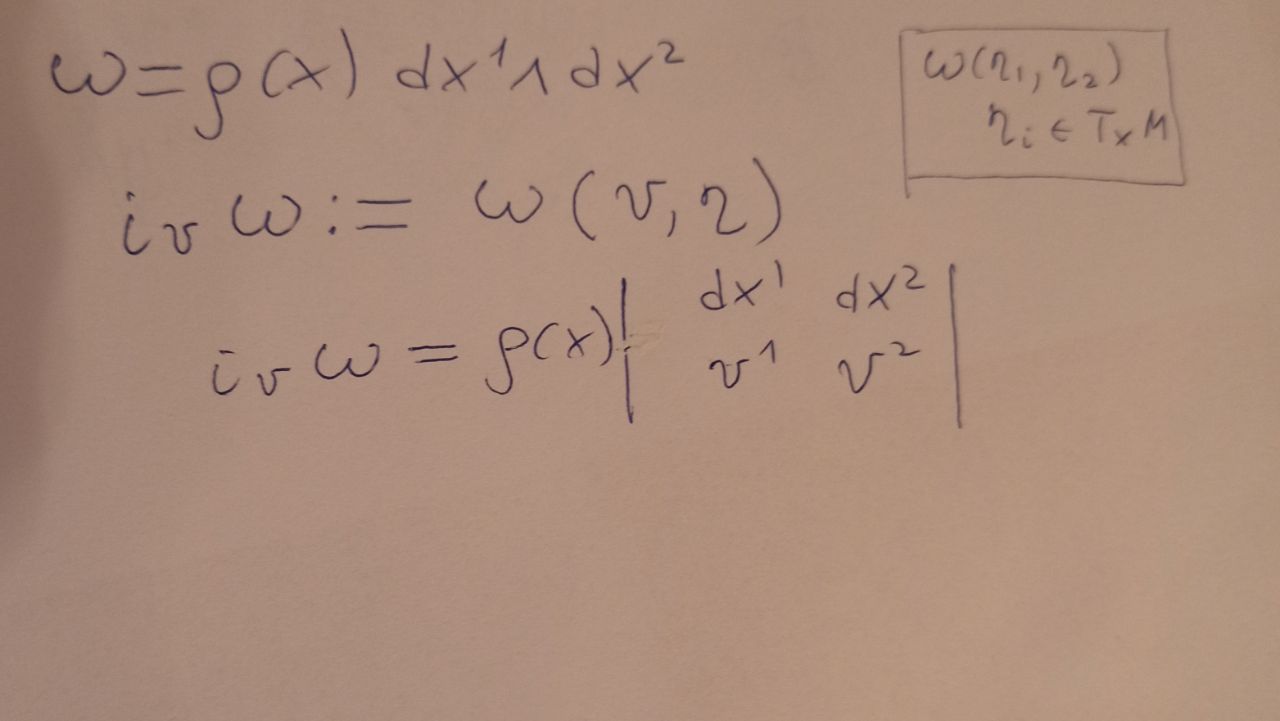 ω=ρ(x) dx¹∧dx²
ω(η₁, η₂)
ηᵢ ∈ TₓM
iᵥ ω := ω(v, η)
iᵥ ω = ρ(x) | dx¹ dx² |
v¹ v²